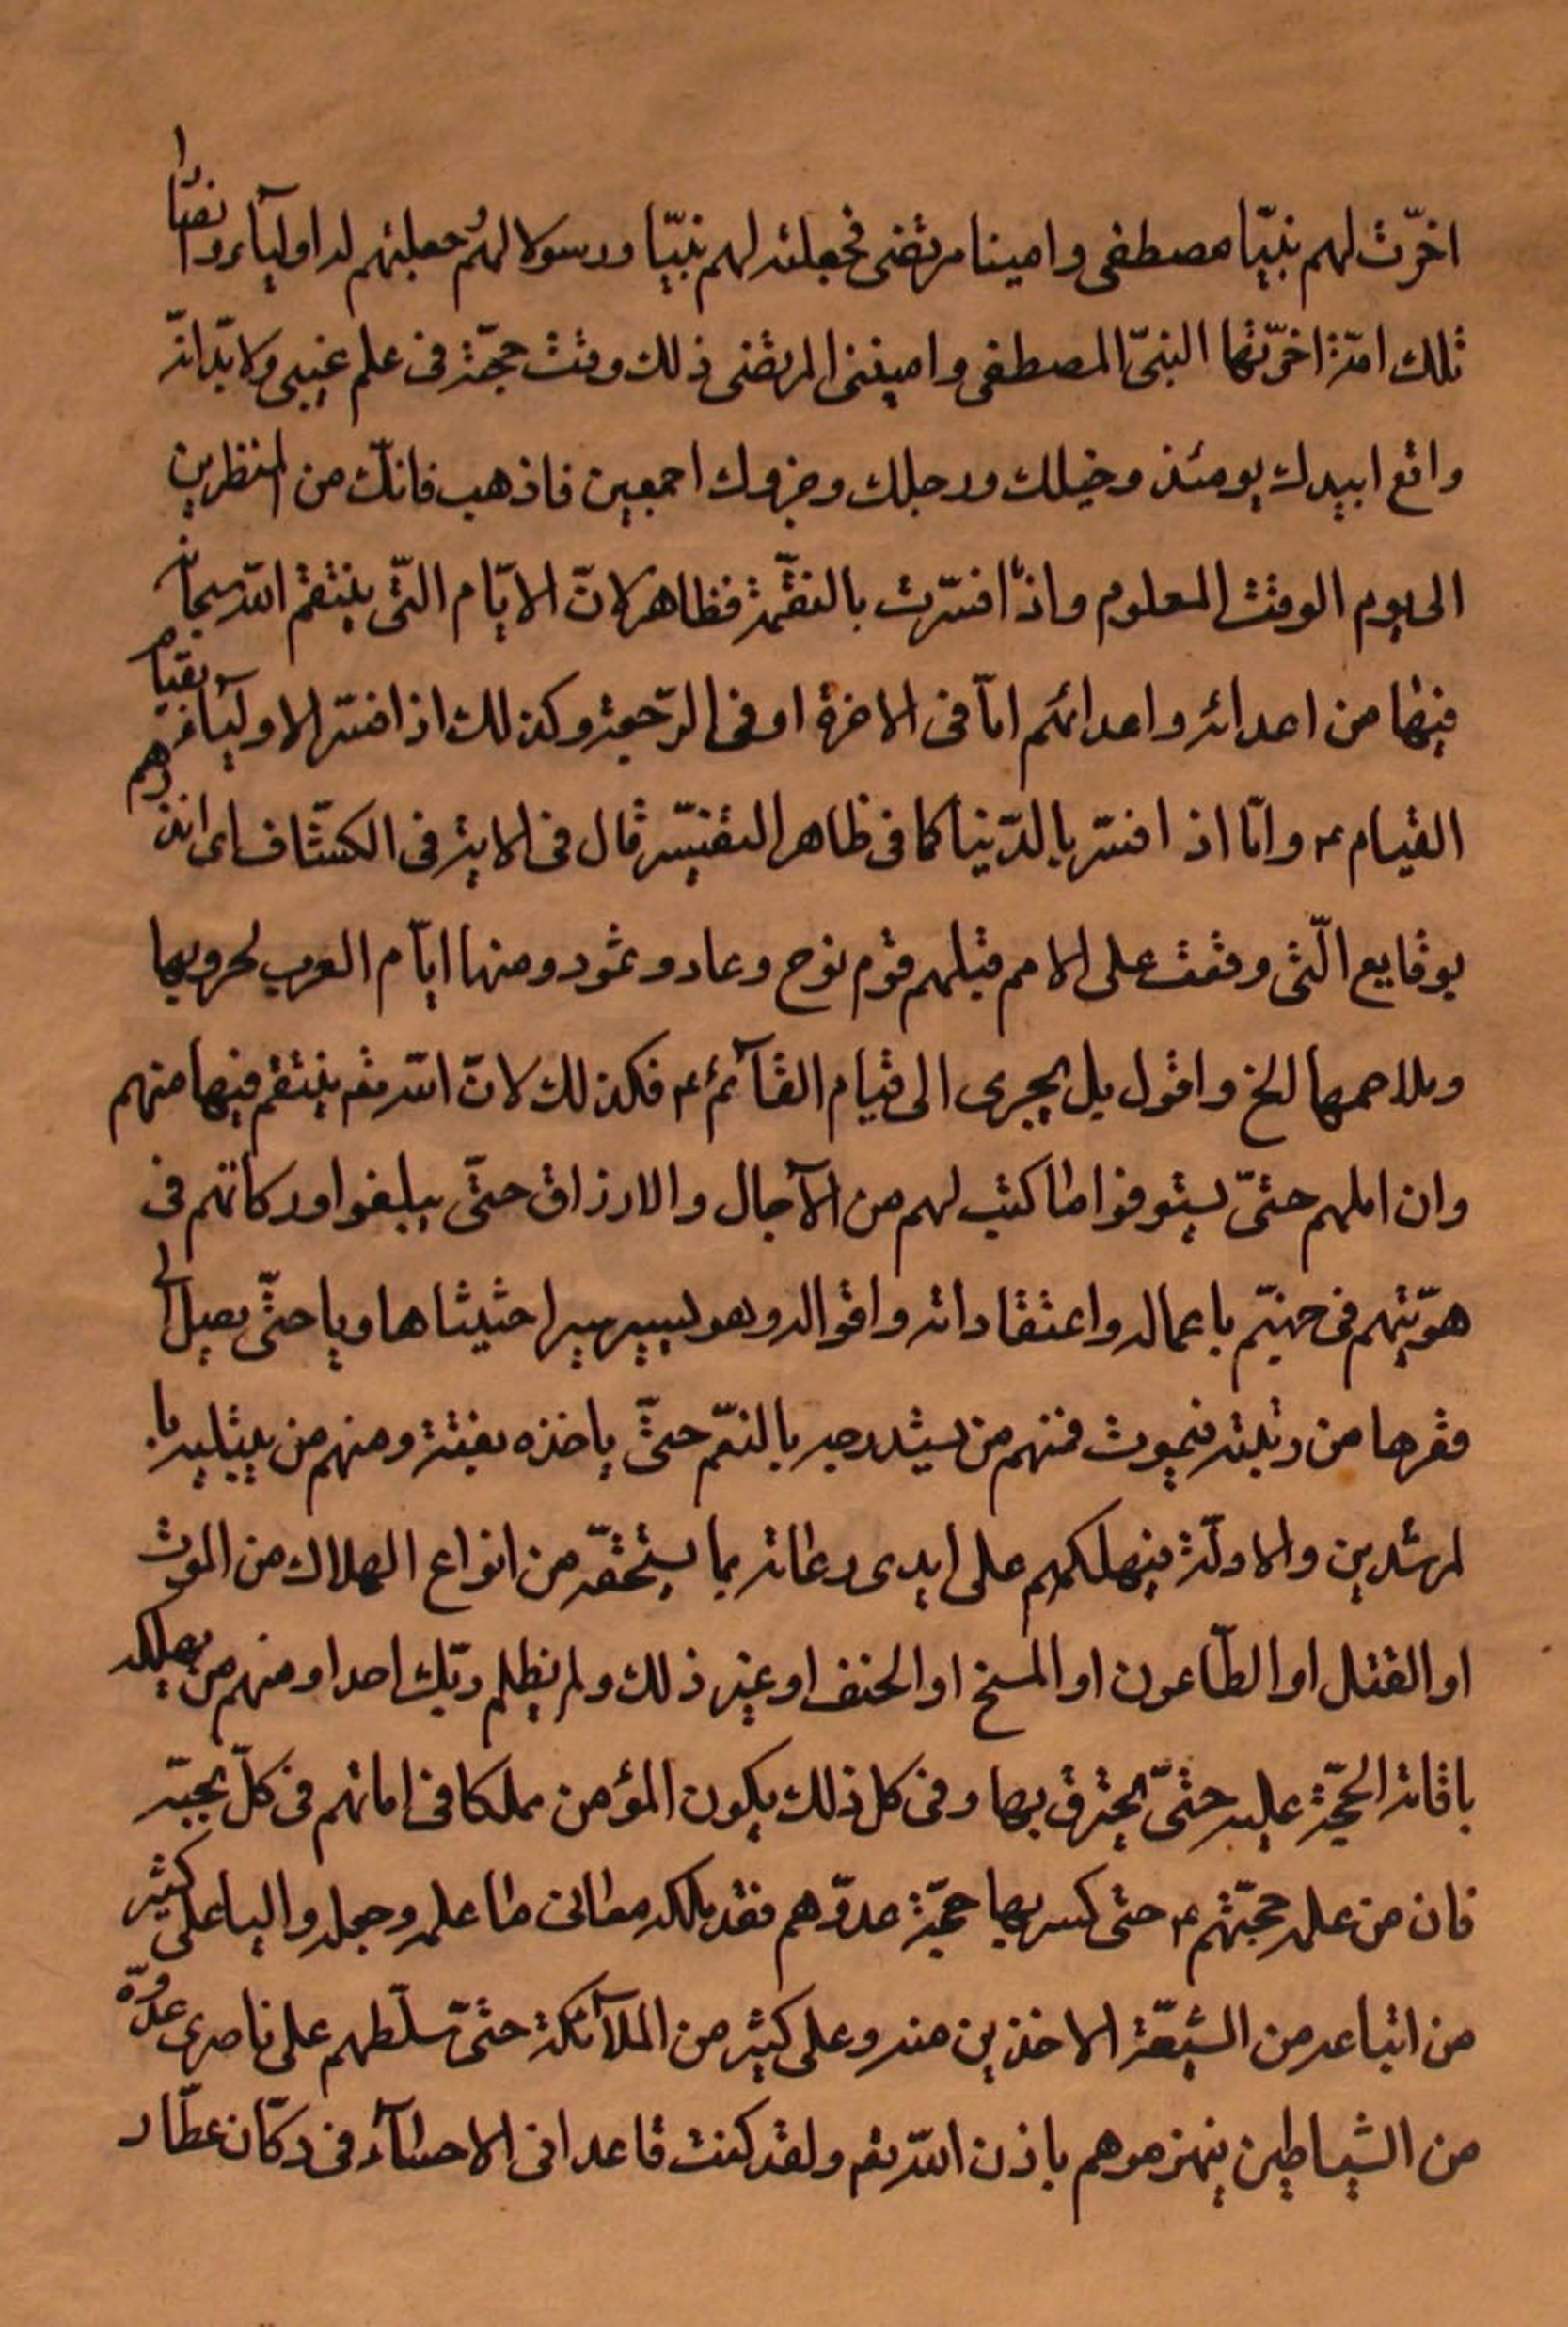 اخرّت لهم نبيّا مصطفى وامينا مرتضى فجعلته لهم نبيّا ورسولا لهم جعلتهم له اولياء وانصارا
تلك امّة اخرّتها النبىّ المصطفى وامينى المرتضى ذلك وقت حجبّة فى علم غيبى ولابدّ انّه
واقع ابيدك يومئذ وخيلك ورجلك وجنودك اجمعين فاذهب فانّك من المنظرين
الى يوم الوقت المعلوم واذا فسّرت بالنقّمة فظاهر لانّ الايّام التّى ينتقم الله سبحانه
فيها من اعدائه واعدائهم امّا فى الاخرة او فى الرّجعة وكذلك اذا فسّر الاولياء بقيام
القيام ء وامّا اذ افسّر بالدّنيا كما فى ظاهر التفسّير قال فى الاية فى الكشّاف اى انذرهم
بوقايع الّتى وقعت على الامم قبلهم قوم نوح وعاد وثمود ومنها ايّام العرب لحروبها
وملاحمها الخ واقول بل يجرى الى قيام القآئم ء فكذلك لانّ الله تعم ينتقم فيها منهم
وان املهم حتىّ يستوفوا ما كتب لهم من الآجال والارزاق حتّى يبلغوا دركاتهم فى
هوّيتهم فى جهنّم باعماله واعتقاداته واقواله وهو يسير سيرا حثيثا هاويا حتّى يصل الى
مقرها من رتبته فيموت فمنهم من يستدرجه بالنعّم حتّى ياخذه بغتة ومنهم من يبتليه با
لمرشدين والادلّة فيهلكهم على ايدى دعاته بما يستحقّه من انواع الهلاك من الموت
او القتل او الطّاعون او المسخ او الخسف او غير ذلك ولم يظلم ربّك احدا ومنهم من يهلكه
باقامة الحجّة عليه حتىّ يحترق بها وفى كل ذلك يكون المؤمن مملكا فى امانهم فى كلّ بحبّه
فان من علمه حجبّتهم ء حتى كسر بها حجّة عدوّهم فقد ملكه معانى ما علمه وجعله واليا على كثير
من اتباعه من الشيعّة الاخذين منه وعلى كثير من الملآئكة حتىّ سلّطهم على ناصرى عدوّه
من الشياطين ينهزموهم باذن الله تعم ولقد كنت قاعدا فى الاحسآء فى دكّان عطّار